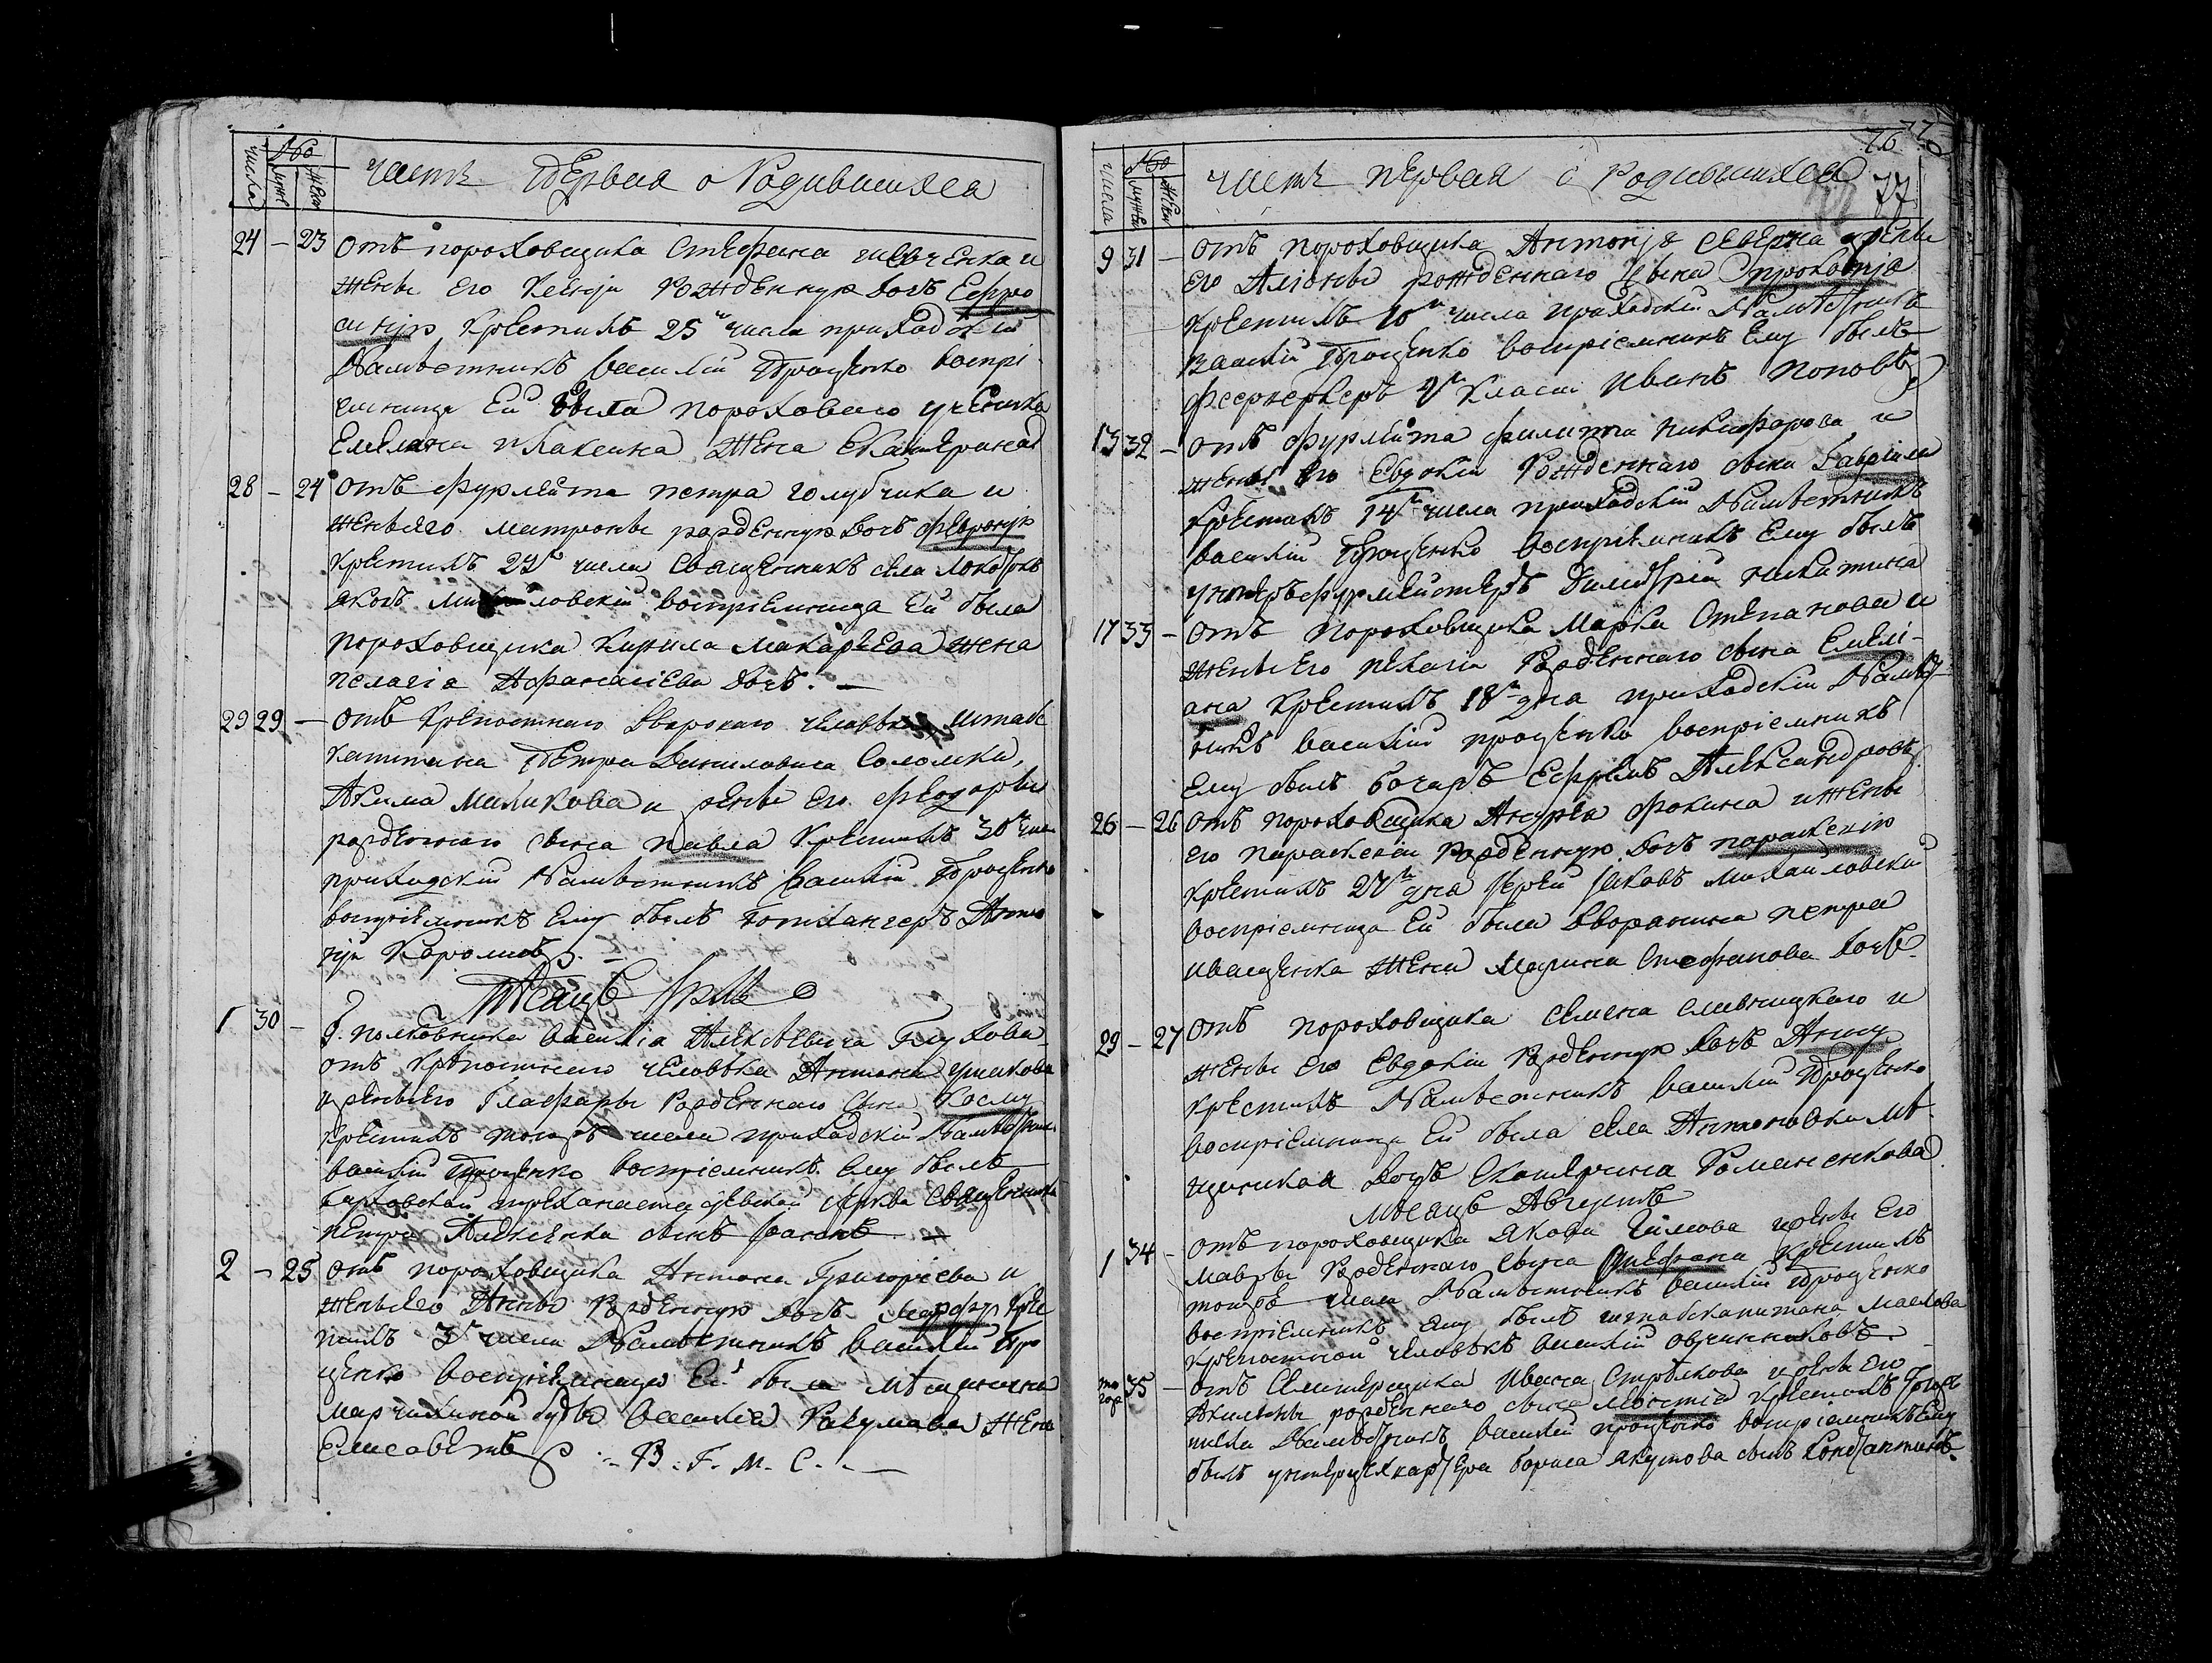 числа № Муже Жен
часть Первая о Родившихся
24 — 23 отъ пороховщика Стефана шевченка и
жены его Ксенiи Рожденную дочь Ефро
синiю крестилъ 25го числа приходскiй
Намѣстникъ василiй Проценко воспрi
емница Ей была пороховаго ученика
Емелiана жена Екатерина
28 — 24 отъ фурлейта петра голубчика и
жены его матроны рожденную дочь февронiю
крестилъ 29го числа Священникъ села
яковъ Михайловскiй воспрiемница Ей была
пороховщика кирила макарьева жена
пелагiа Афанасiева дочь. —
29 29 — отъ крепостнаго дворскаго человека штабс
капитана Петра Даниловича Соломки,
Акима Маликова и жены его феодоры
рожденнаго сына павла крестилъ 30го чис
приходскiй Намѣстникъ василiй Проценко
воспрiемникъ Ему былъ готлангеръ Анто
нiй
Мѣсяцъ Iюль
1 30 — г. полковника василiа Алексѣевича Глухова
отъ крѣпостнаго человѣка Антона ушакова
и жены его Глафиры Рожденнаго сына Косму
крестилъ тогожъ числа приходскiй Намѣстникъ
василiй Проценко воспрiемникъ Ему былъ
церкви священника
петра сынъ
2 — 25 отъ пороховщика Антона Григорiева и
жены его Анны Рожденную дочь Марфу кре
тилъ 3го числа Намѣстникъ василiй Про
ценко воспрiемница Ей была мѣщанина
василiа Ракумова жена
Елисаветъ .. В. Г. М. С. .. —
76 77
числа № Мужеи жен
часть первая о Родившихся 77
9 31 — отъ пороховщика Антонiя Северна и жены
его Алены рожденнаго сына прокопiя
крестилъ 10го числа приходскiй Намѣстникъ
Василiй Проценко воспрiемникъ Ему былъ
феерверкеръ 4го класса Иванъ Поповъ
13 32 — отъ фурлейта филиппа никифорова и
жены его Евдокiи Рожденнаго сына Гаврiила
крестилъ 14го числа приходскiй Намѣстникъ
василiй Проценко воспрiемникъ Ему былъ
унтеръ фурлейстеръ Димитрiй никитинъ
17 33 — отъ пороховщика Марка Степанова и
жены его пелагiи Рожденнаго сына Емелi-
ана крестилъ 18го дня приходскiй Намѣст
никъ василiй проценко воспрiемникъ
Ему былъ бочаръ Ефремъ Александровъ
26 — 26 отъ пороховщика Андрея фокина и жены
его параскевiи Рожденную дочь параскевiю
крестилъ 27го дня Iерей Iаковъ михайловскiй
воспрiемница Ей была дворянина петра
иващенка жена Марина Стефанова дочь
29 — 27 отъ пороховщика семена слывицкаго и
жены его Евдокiи Рожденную дочь Анну
крестилъ Намѣстникъ василiй Проценко
воспрiемница Ей была села Антоновки мѣ-
щанская дочь Екатерина Романенкова
Мѣсяцъ Августъ
1 34 — отъ пороховщика якова и жены его
Мавры Рожденнаго сына Стефана крестилъ
тогожъ числа Намѣстникъ василiй Проценко
воспрiемникъ ему былъ штабскапитана маслова
крепостной человѣкъ василiй овчинниковъ
то гож 35 — отъ Селитерщика Ивана Стрѣлкова и жены его
Акилины рожденнаго сына крестилъ тогожъ
числа Намѣстникъ василiй проценко воспрiемникъ Ему
былъ унтерцейхвартера бориса якутова сынъ Константинъ